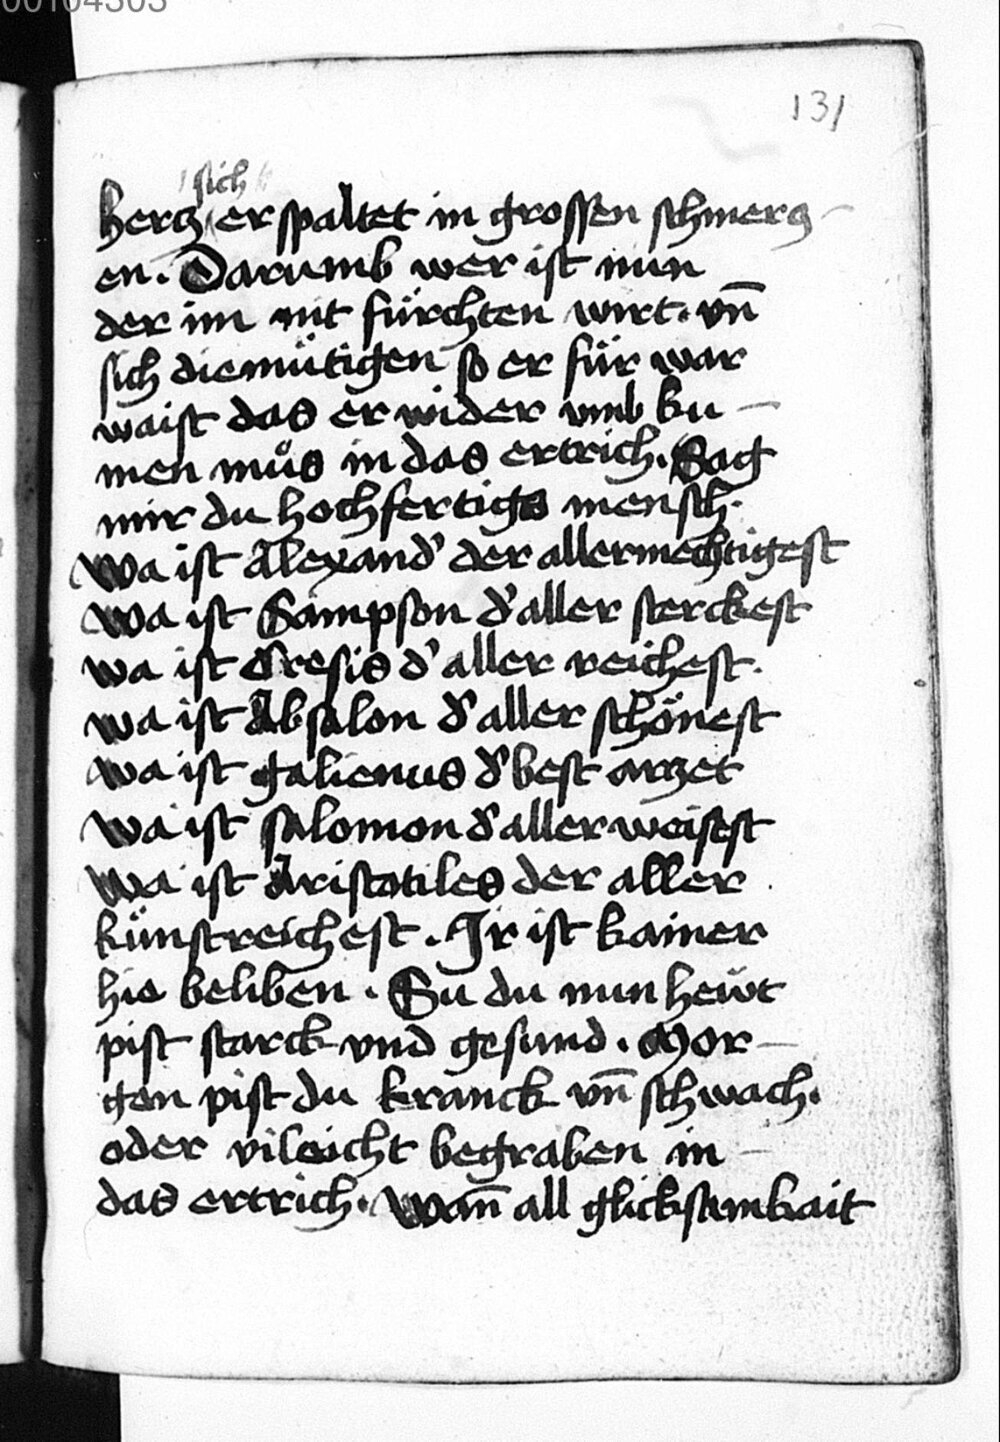 00104303
131
sich
hercz erspaltet in grossen schmercz
en. Darumb wer ist nun
der im nit fürchten wirt. vn̄
sich diemütigen so er für war
waist das er wider vmb ku
men mu̇s in das ertrich. Sag
mir du hochfertigs mensch.
Wa ist Alexand' der allermechtigest
Wa ist Sampson d' aller sterckest
wa ist Cresis d' aller reichest.
wa ist Absalon d' aller schönest
wa ist galienus d' best arczet
wa ist salomon d' aller weisest
wa ist Aristotiles der aller
künstreichest. Ir ist kainer
hie beliben. Su du nun heẅt
pist starck vnd gesund. Mor
gen pist du kranck vn̄ schwach.
oder vileicht begraben in
das ertrich. Wan̄ all glicksamkait